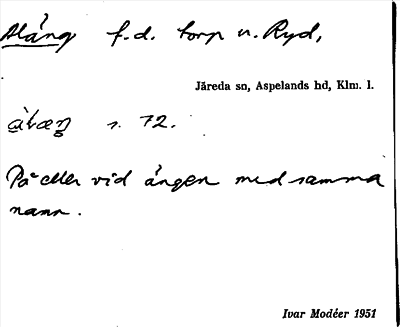 f.d. torp u. Ryd,
Järeda sn, Aspelands hd, Klm. l.
s. 72.
På eller vid ängen med samma
namn.
Ivar Modéer 1951